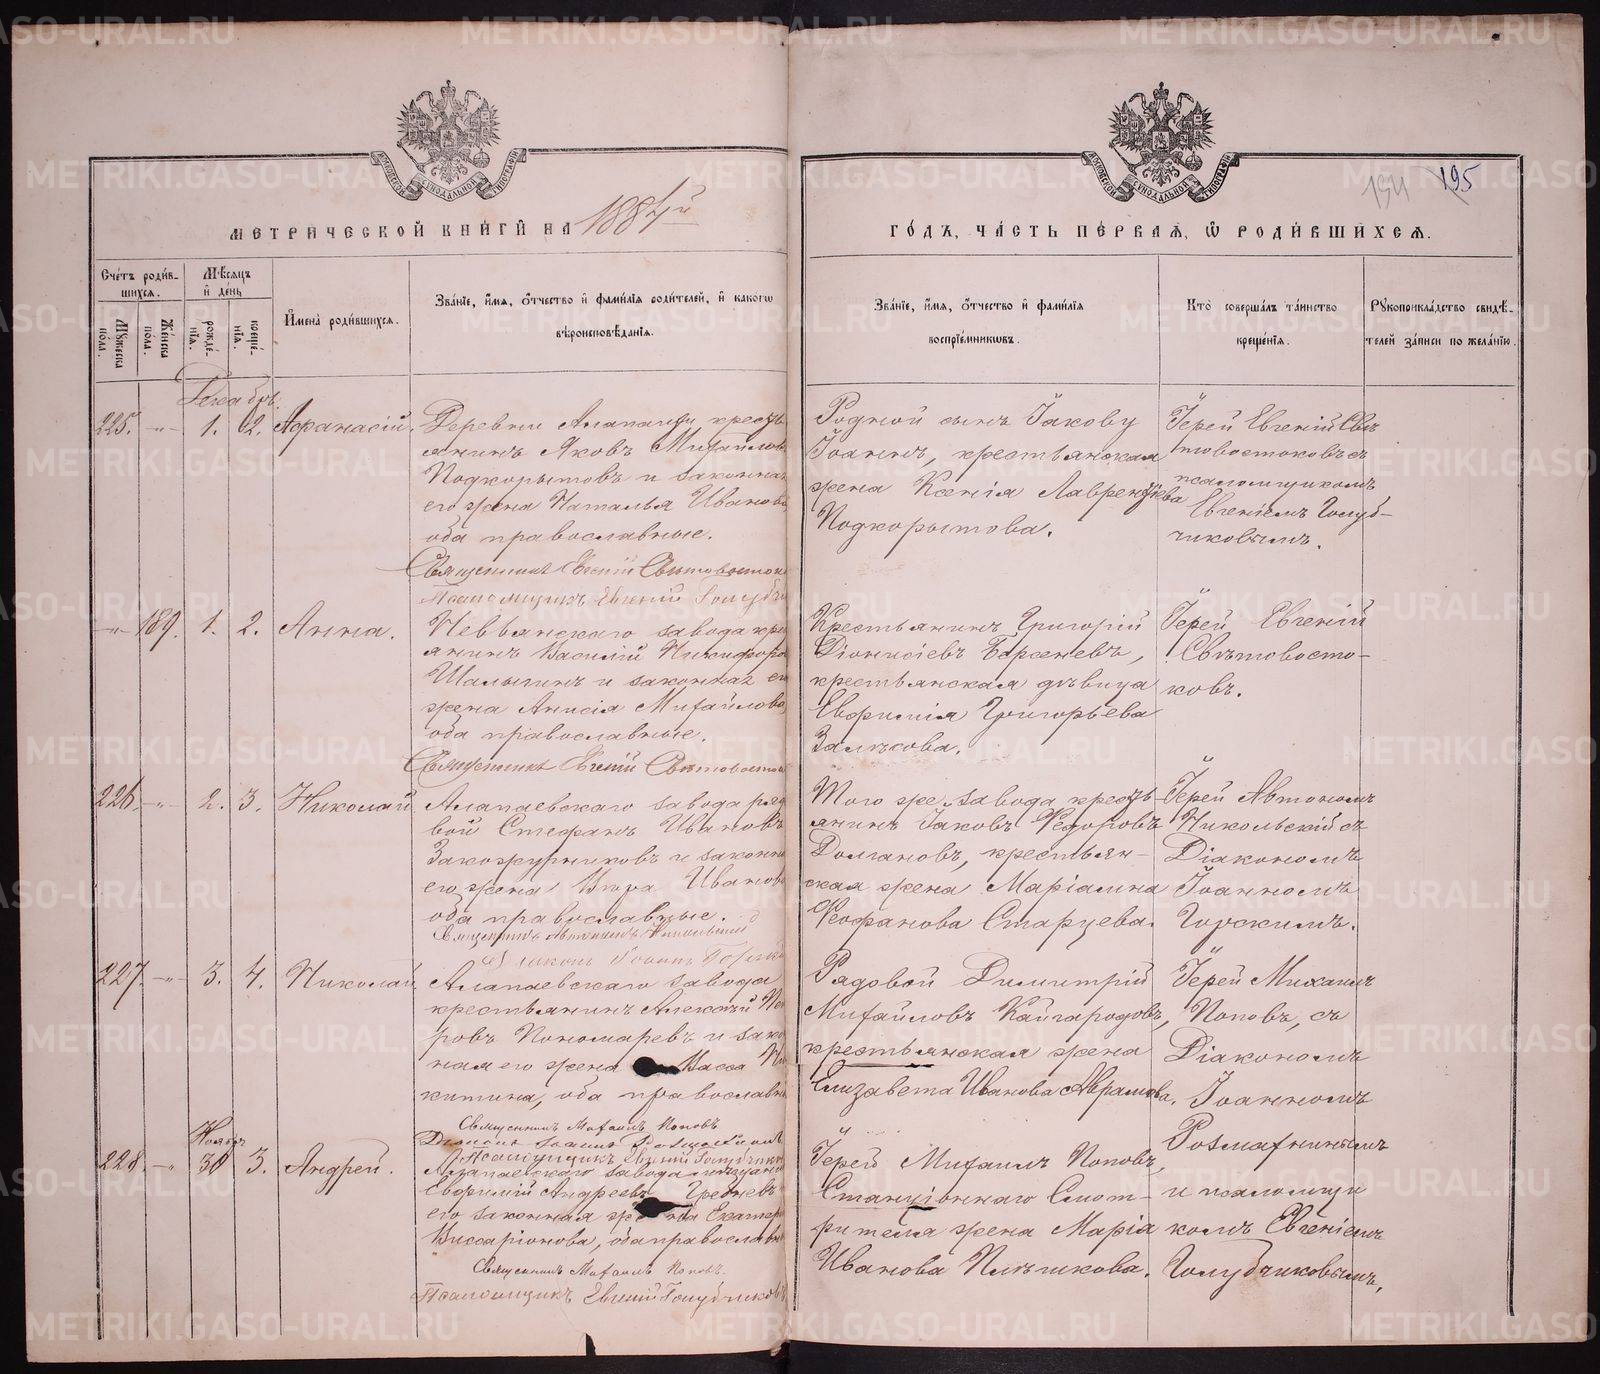 МЕТРИЧЕСКОЙ КНИГИ НА 1884й
ГОДЪ, ЧАСТЬ ПЕРВАЯ, Ѡ РОДИВШИХСЯ.
194 195
Счетъ родив-
шихся.
Мужеска пола.
Женска пола.
Мѣсяцъ
и день
рожде-
нїя.
креще-
нїя.
Имена родившихся.
Званїе, имя, отчество и фамилїя родителей, и какогѡ
вѣроисповѣданїя.
Званїе, имя, отчество и фамилїя
воспрїемникѡвъ.
Кто совершалъ таинство
крещенїя.
Рукоприкладство свидѣ-
телей записи по желанїю.
Декабрь.
225. -"- 1. 2. Аѳанасій.
Деревни Алапаихи кресть
янинъ Яковъ Михайловъ
Подкорытовъ и законная
его жена Наталья Иванова
оба православные.
Священникъ Евгеній Свѣтовостоков
Псаломщикъ Евгеній Голубчи
Родной сынъ Іакову
Іоаннъ, крестьянская
жена Ксенія Лаврентіева
Подкорытова.
Іерей Евгеній Свѣ
товостоковъ съ
псаломщикомъ
Евгеніемъ Голуб-
чиковымъ.
-"- 189. 1. 2. Анна.
Невьянскаго завода кре
янинъ Василій Никифоров
Шалыгинъ и законная его
жена Анисія Михайлова,
оба православные.
Священникъ Евгеній Свѣтовостоков
Крестьянинъ Григорій
Діонисіевъ Берсеневъ,
крестьянская дѣвица
Евфимія Григорьева
Залѣсова.
Іерей Евгеній
Свѣтовосто-
ковъ.
226. -"- 2. 3. Николай
Алапаевскаго завода рядо
вой Стефанъ Ивановъ
Закожурниковъ и законна
его жена Вѣра Иванов
оба православные.
Священникъ Автономъ Никольский
Діаконъ Іоаннъ Горски
Того же завода кресть-
янинъ Іаковъ Ѳедоровъ
Долгановъ, крестьян-
ская жена Маріамна
Ѳеофанова Старцева.
Іерей Автономъ
Никольскій съ
Діакономъ
Іоанномъ
Горскимъ.
227. -"- 3. 4. Николай
Алапаевскаго завода
крестьянинъ Алексѣй Пет
ровъ Пономаревъ и зако
ная его жена Васса Ни
китина, оба православн
Священникъ Михаилъ Поповъ
Рядовой Димитрій
Михайловъ Кайгародовъ,
крестьянская жена
Елизавета Иванова Абрамова.
Іерей Михаилъ
Поповъ, съ
Діакономъ
Іоанномъ
Розмахнинымъ
Псаломщикъ Евгеній Голубчик
Ноябрь
228. -"- 30 3. Андрей.
Алапаевскаго завода
Евфимій Андреевъ Гребневъ
его законная жена Екатери
Виссаріонова, оба православн
Священникъ Михаилъ Поповъ.
Псаломщикъ Евгеній Голубчиковъ
Іерей Михаилъ Поповъ,
Станціоннаго Смот-
рителя жена Марія
Иванова Плѣшкова.
и псаломщи
комъ Евгеніемъ
Голубчиковымъ,